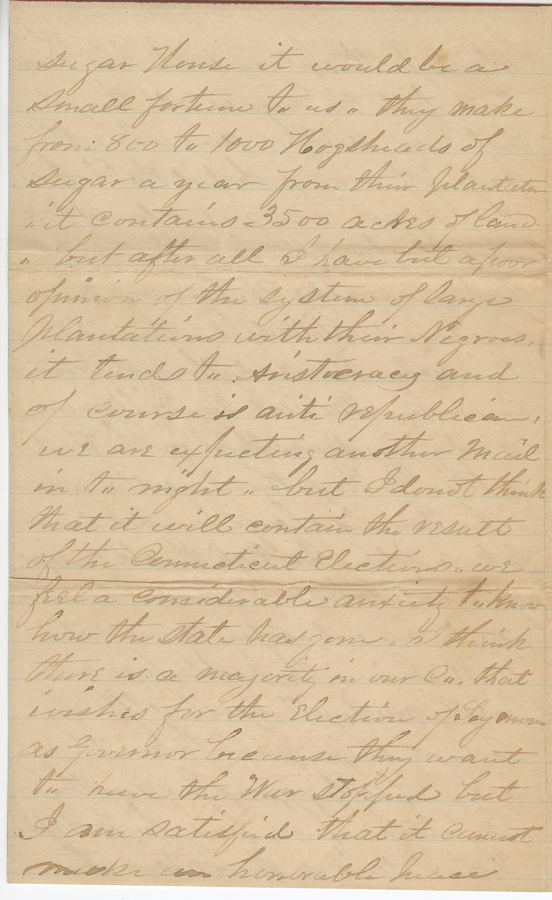 sugar House it would be a
small fortune to" us " they make
from 800 to" 1000 Hogsheads of
sugar a year from their plantation
" it contains 3500 acres of land
" but after all I have but a poor
opinion of the system of large
plantations with their Negroes.
it tends to" Aristocracy and
of course is anti republican,
we are expecting another Mail
in to" night " but I do not think
that it will contain the result
of the Connecticut Elections " we
feel a considerable anxiety to" know
how the state has gone. I think
there is a majority in our Co". that
wishes for the Election of Seymour
as Governor because they want
to" have the War stopped but
I am satisfied that it cannot
make an honorable peace